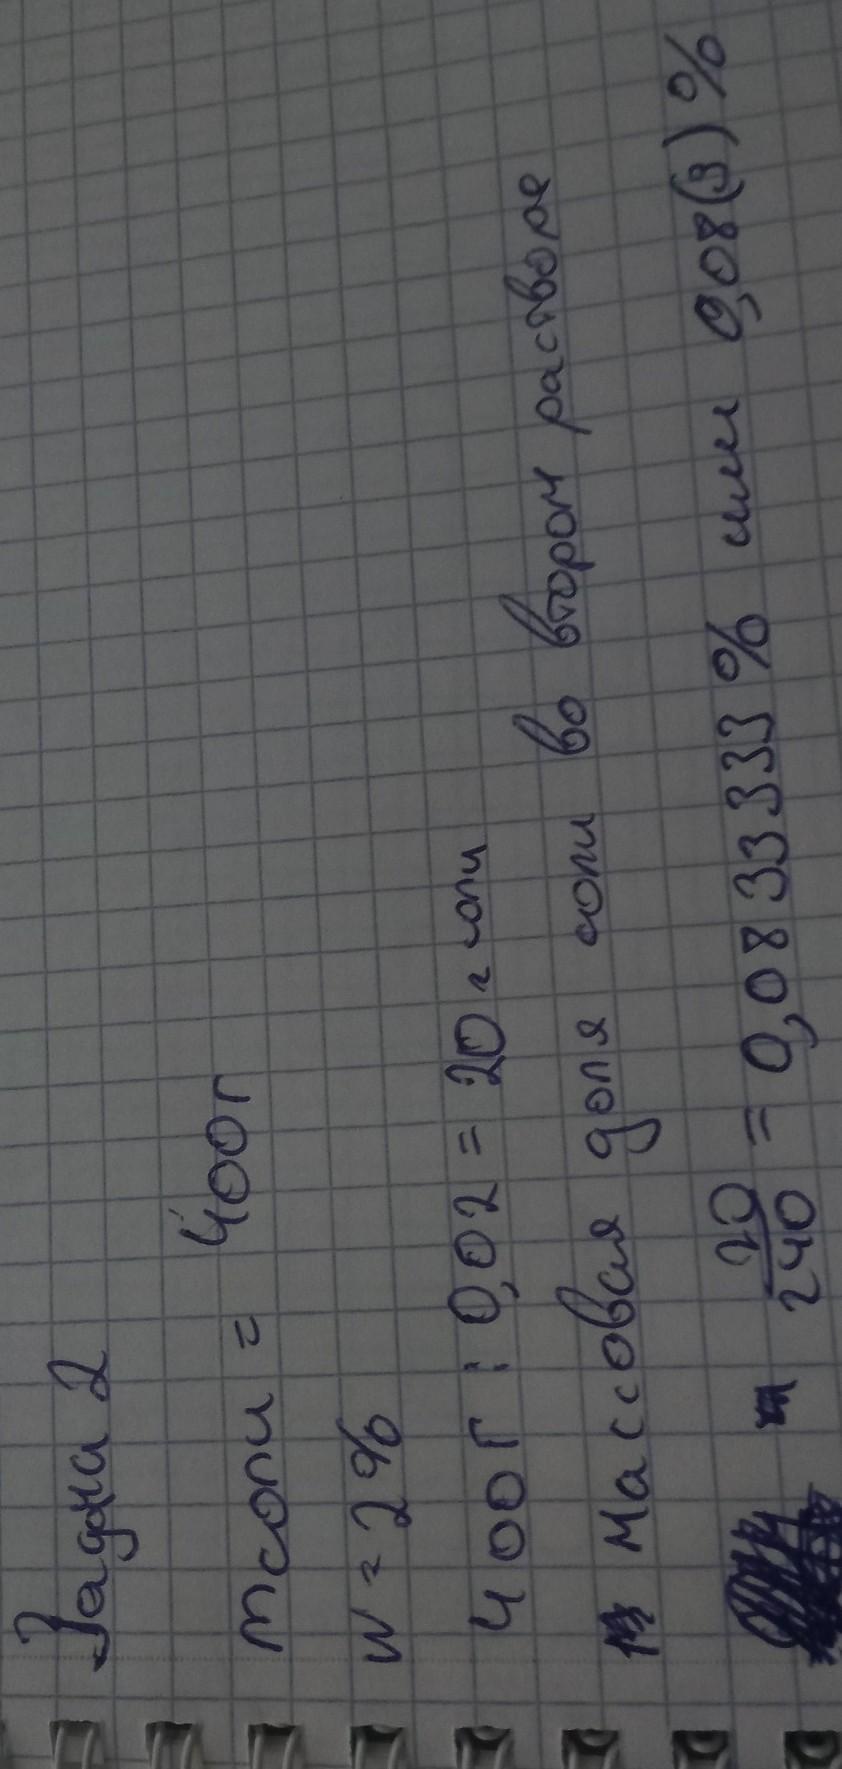 Задача 2
mсоли = 400г
W = 2%
400г : 0,02 = 20 г соли
Массовая доля соли во втором растворе
20/240 = 0,0833333% или 0,08(3)%